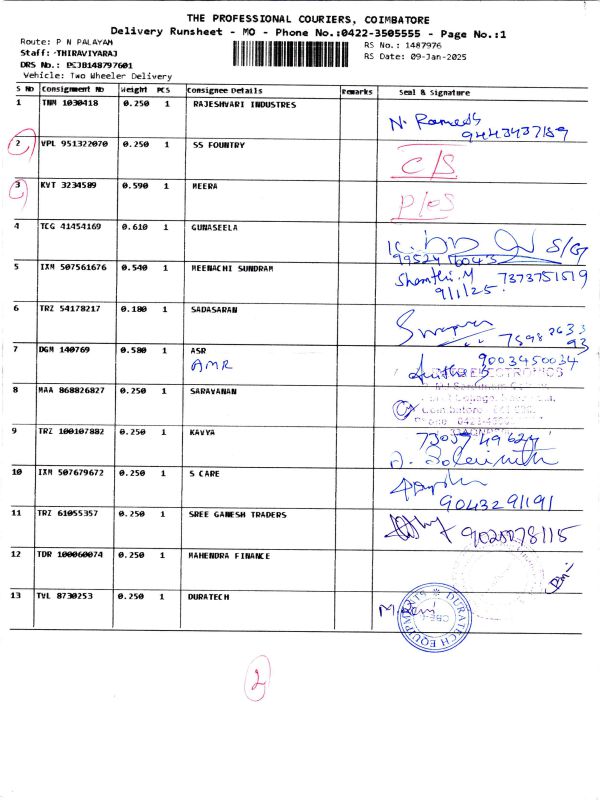 THE PROFESSIONAL COURIERS, COIMBATORE
Delivery Runsheet - MO - Phone No.:0422-3505555 - Page No.:1
Route: P N PALAYAM
RS No.: 1487976
Staff: THIRAVIYARAJ
RS Date: 09-Jan-2025
DRS No.: PCJB148797601
Vehicle: Two Wheeler Delivery
S No Consignment No Weight PCS Consignee Details Remarks Seal & Signature
1 TNM 1030418 0.250 1 RAJESHVARI INDUSTRES
N. Ramesh
9443437189
2 VPL 951322070 0.250 1 SS FOUNTRY
C/S
3 KVT 3234589 0.590 1 MEERA
P/OS
4 TCG 41454169 0.610 1 GUNASEELA
S/G
9952416043
5 IXM 507561676 0.540 1 MEENACHI SUNDRAM
Shanthi.M 7373751519
9/1/25
6 TRZ 54178217 0.180 1 SADASARAN
75982633
93
7 DGM 140769 0.580 1 ASR
9003450034
AMR
ELECTRONICS
8 MAA 868826827 0.250 1 SARAVANAN
Coimbatore
9 TRZ 100107882 0.250 1 KAVYA
10 IXM 507679672 0.250 1 S CARE
9043291191
11 TRZ 61055357 0.250 1 SREE GANESH TRADERS
9025078115
12 TDR 100060074 0.250 1 MAHENDRA FINANCE
13 TVL 8730253 0.250 1 DURATECH
DURATECH EQUIPMENTS
CBE-
2